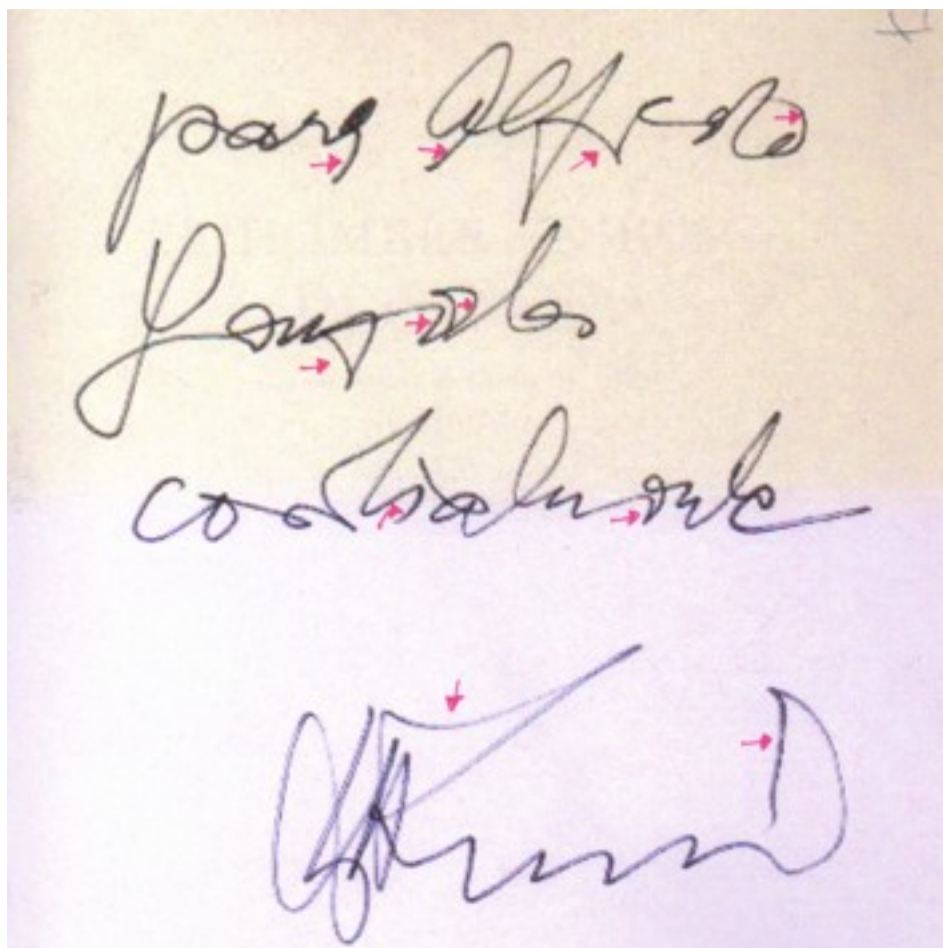 para Alfredo
González
cordialmente